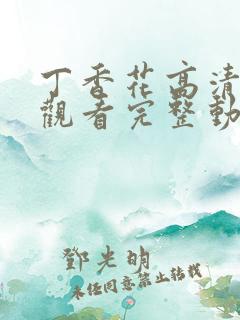 丁香花高清
觀看完整動
鄧光明
未經同意禁止轉載